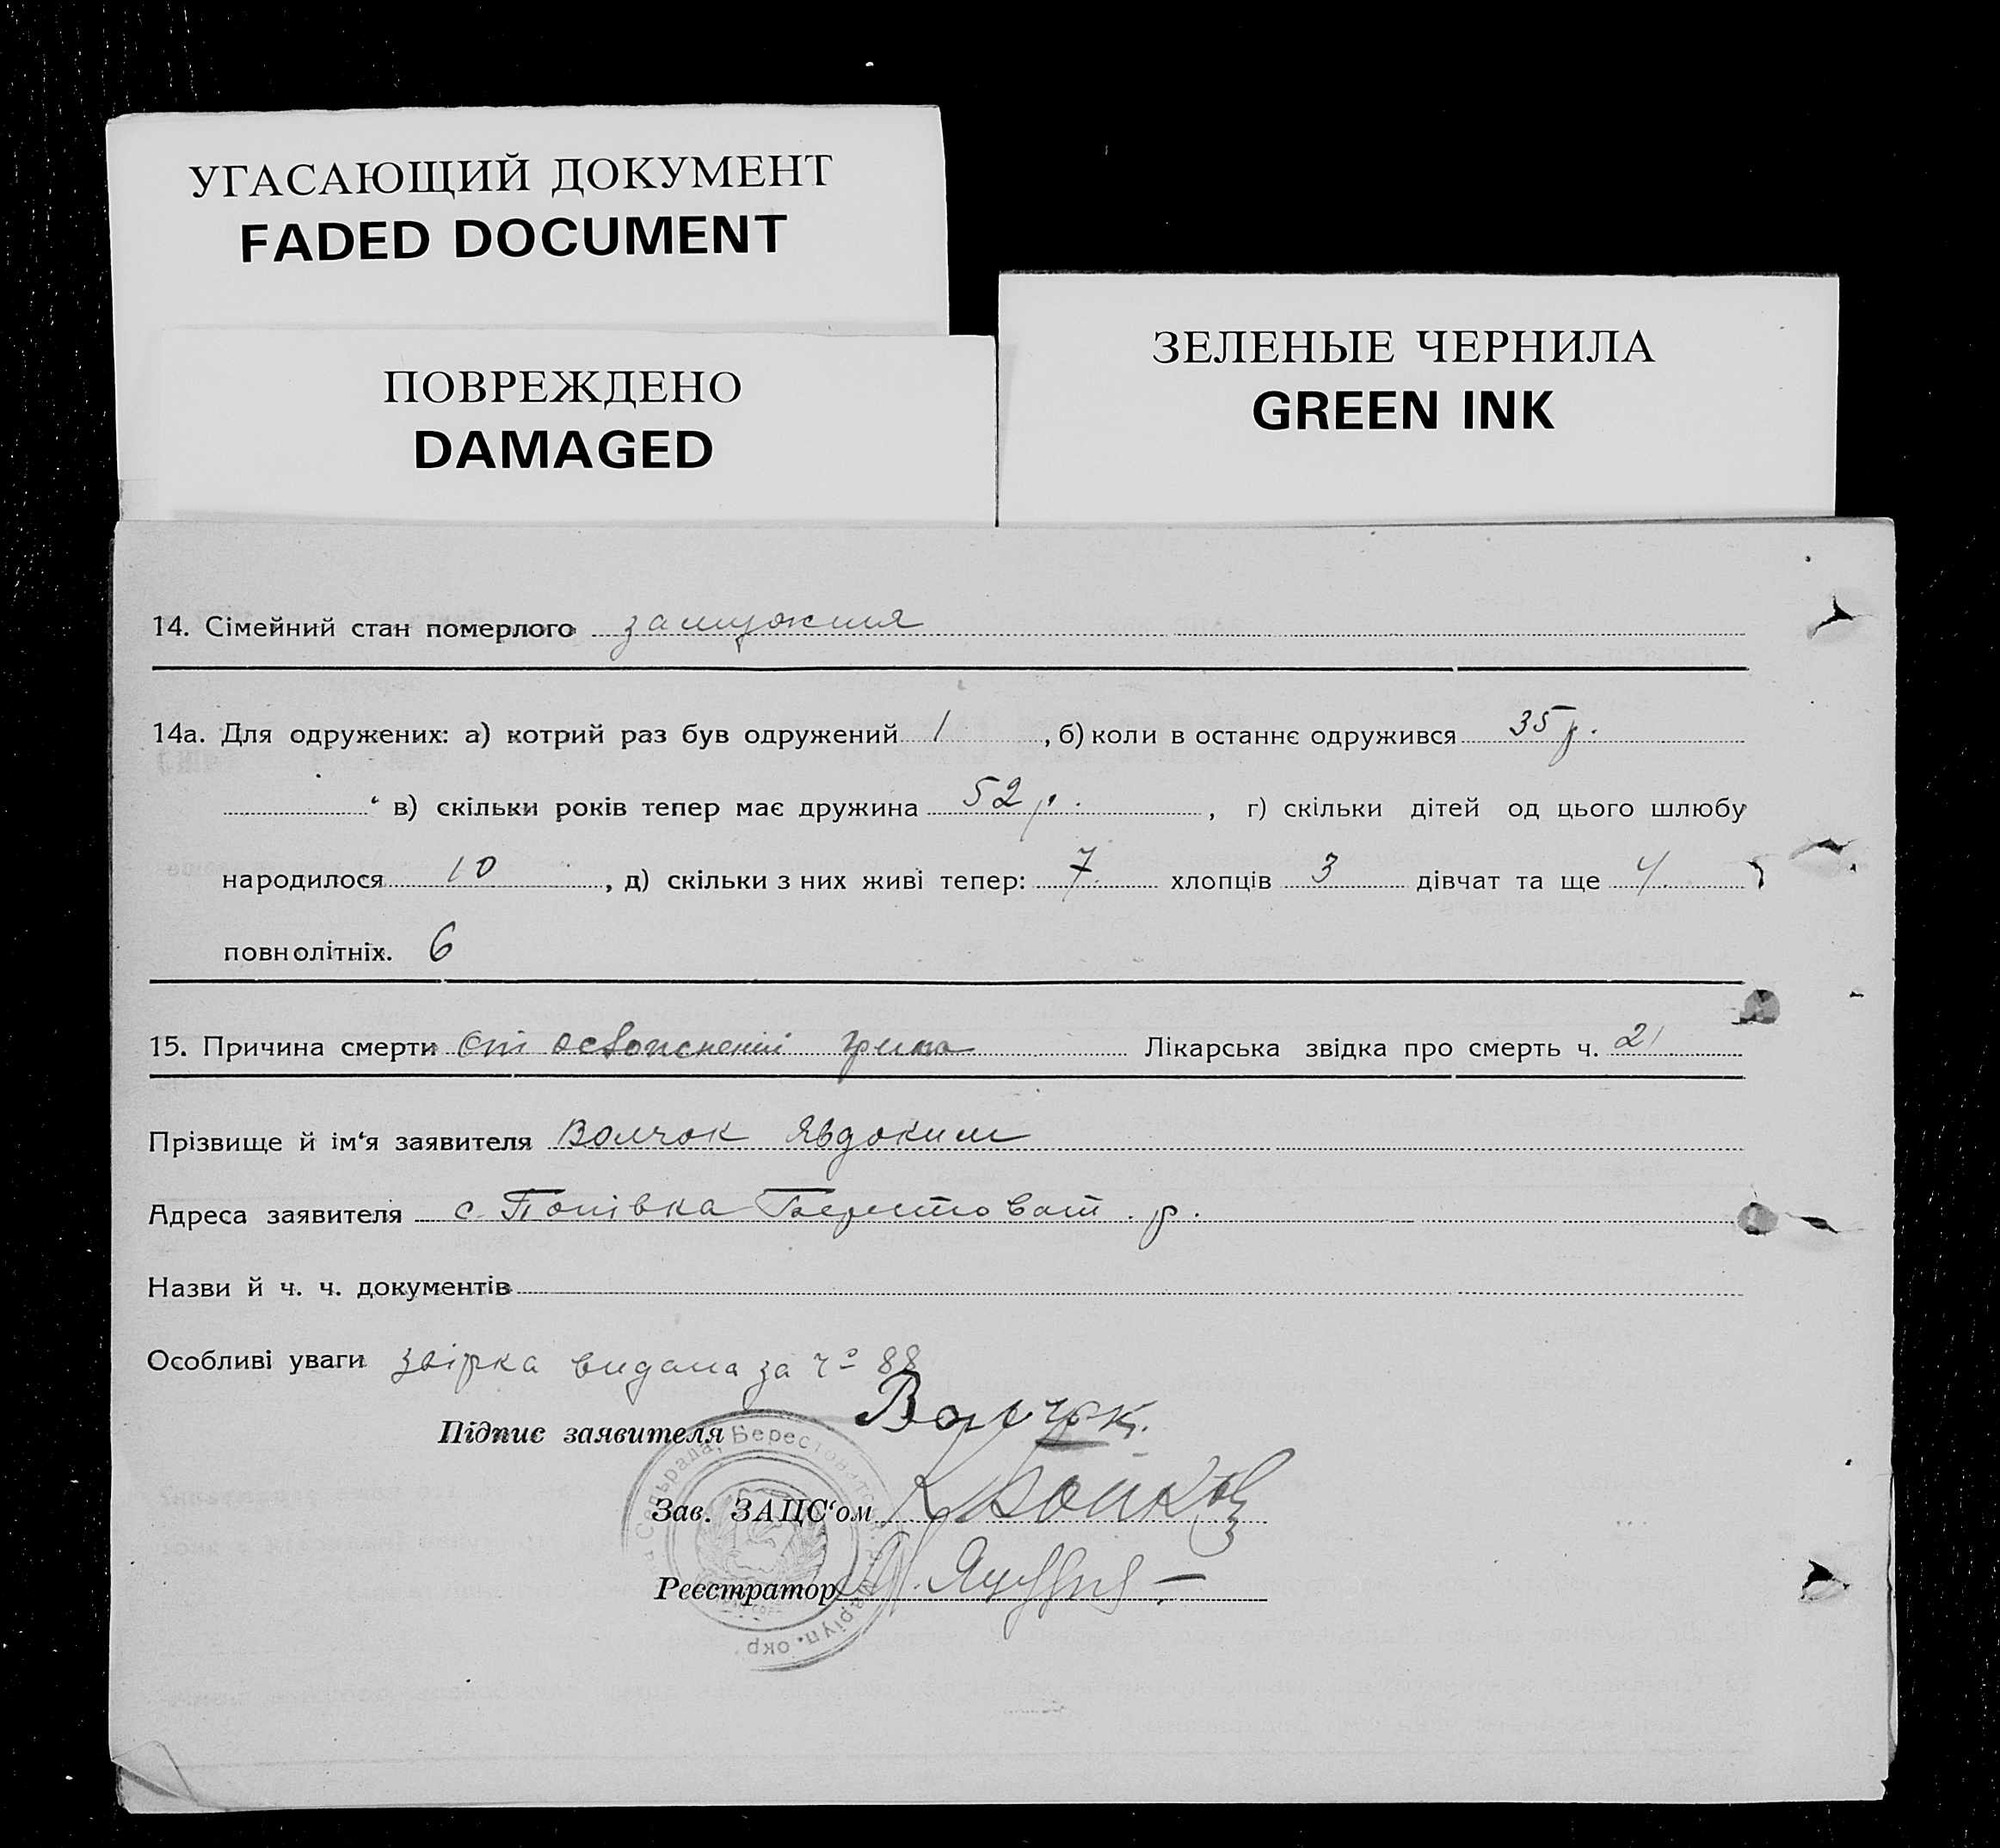 УГАСАЮЩИЙ ДОКУМЕНТ
FADED DOCUMENT
ПОВРЕЖДЕНО
DAMAGED
ЗЕЛЕНЫЕ ЧЕРНИЛА
GREEN INK
14. Сімейний стан померлого замужния
14а. Для одружених: а) котрий раз був одружений 1 , б) коли в останнє одружився 35 р.
в) скільки років тепер має дружина 52 р. , г) скільки дітей од цього шлюбу
народилося 10 , д) скільки з них живі тепер: 7 хлопців 3 дівчат та ще 4
повнолітніх. 6
15. Причина смерти От Лікарська звідка про смерть ч. 21
Прізвище й ім'я заявителя Волчок Явдоким
Адреса заявителя с. Попівка Берестоват. р.
Назви й ч. ч. документів
Особливі уваги звірка видана за 88
Підпис заявителя Волчок.
Зав. ЗАЦС'ом К Бойко
Реєстратор
Сельрада, Берестоват Маріуп. окр.